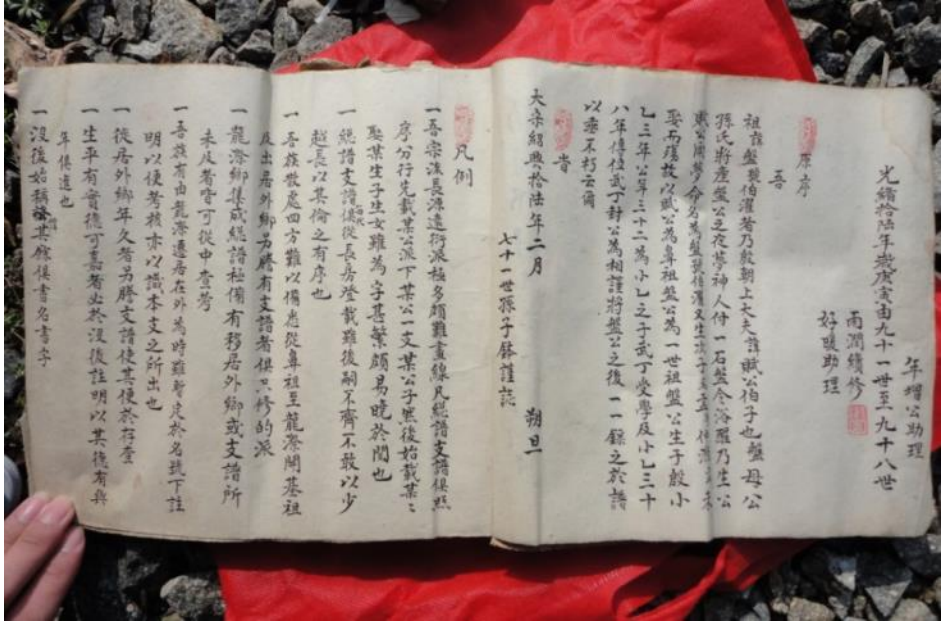 年增公助理
光緒拾陆年歲庚寅由九十一世至九十八世
雨潤續修
好暖助理
原序
吾
祖諱盤號伯濯者乃殷朝上大夫諱賦公伯子也盤母公
孫氏將產盤公之夜夢神人付一石盤令浴罷乃生公
賦公因夢命名為盤號伯濯又生次子
娶而殤故以賦公為鼻祖盤公為一世祖盤公生子殷小
乙三年公年三十二為小乙之子武丁受學及小乙三十
八年傳位武丁封公為相謹將盤公之後一一錄之於譜
以垂不朽云爾
旹
大宋紹興拾陸年二月 朔旦
七十一世孫子鉢謹誌
凡例
一吾宗溪長源遠衍派極多頗難畫線凡總譜支譜俱照
序分行先載某公派下某公一支某公子然後始載某々
娶某生子生女雖為字甚繁頗易曉於閱也
一總譜支譜俱從長房登載雖後嗣不齊不敢以少
越長以其倫之有序也
一吾族散處四方難以備悉從鼻祖至龍潦開基祖
及出居外鄉另謄有支譜者俱只修的派
一龍潦鄉集成總譜秪備有移居外鄉或支譜所
未及者皆可從中查考
一吾族有由龍潦遷居在外為時難暫定於名號下註
明以便考核亦以識本支之所出也
一徙居外鄉年久者另謄支譜使其便於存查
一生平有實德可嘉者必於沒後註明以其德有與
年俱進也
一沒後始稱其餘俱書名書字